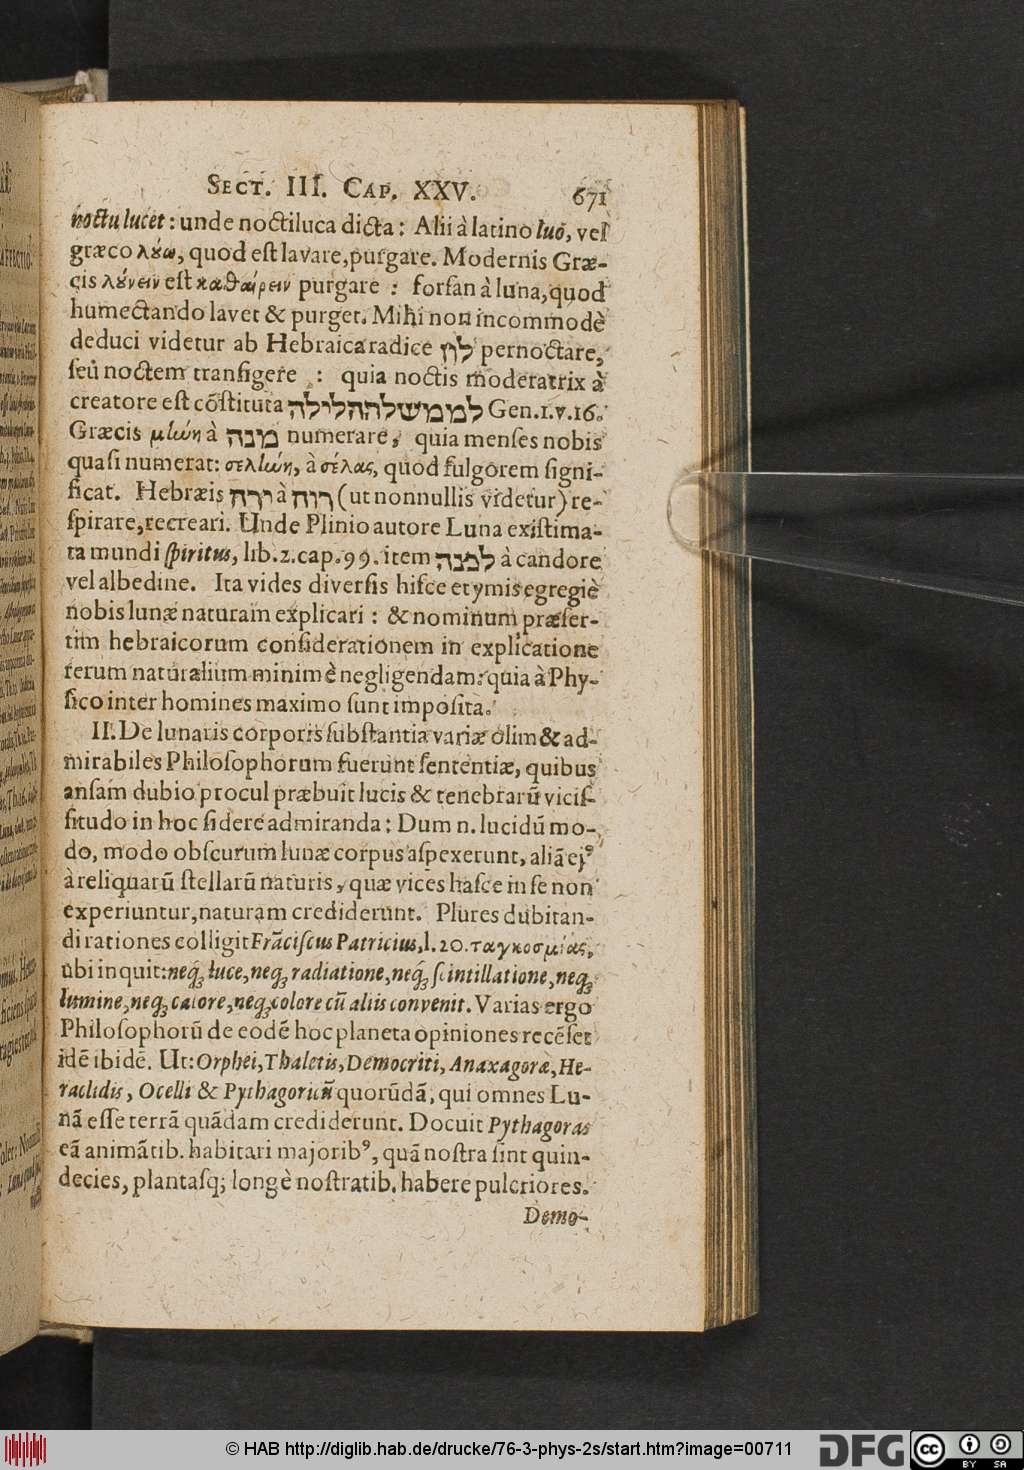 Sect. III. Cap. XXV. 671
noctu lucet: unde noctiluca dicta: Alii à latino luo, vel
græco λύω, quod est lavare, purgare. Modernis Græ-
cis λύνειν est καθαίρειν purgare : forsan à luna, quod
humectando lavet & purget. Mihi non incommodè
deduci videtur ab Hebraica radice לון pernoctare,
seu noctem transigere : quia noctis moderatrix à
creatore est cōstituta לממשלההלילה Gen. 1. v. 16.
Græcis μιώη à מנה numerare, quia menses nobis
quasi numerat: σελιώη, à σέλας, quod fulgorem signi-
ficat. Hebræis ירה à רוה (ut nonnullis videtur) re-
spirare, recreari. Unde Plinio autore Luna existima-
ta mundi spiritus, lib. 2. cap. 99. item לבנה à candore
vel albedine. Ita vides diversis hisce etymis egregiè
nobis lunæ naturam explicari : & nominum præser-
tim hebraicorum considerationem in explicatione
rerum naturalium minimè negligendam: quia à Phy-
sico inter homines maximo sunt imposita.
II. De lunaris corporis substantia variæ olim & ad-
mirabiles Philosophorum fuerunt sententiæ, quibus
ansam dubio procul præbuit lucis & tenebrarū vicis-
situdo in hoc sidere admiranda: Dum n. lucidū mo-
do, modo obscurum lunæ corpus aspexerunt, aliā ejꝰ
à reliquarū stellarū naturis, quæ vices hasce in se non
experiuntur, naturam crediderunt. Plures dubitan-
di rationes colligit Frāciscus Patricius, l. 20. παγκοσμίας,
ubi inquit: neqꝫ luce, neqꝫ radiatione, neqꝫ scintillatione, neqꝫ
lumine, neqꝫ calore, neqꝫ colore cū aliis convenit. Varias ergo
Philosophorū de eodē hoc planeta opiniones recēset
idē ibidē. Ut: Orphei, Thaletis, Democriti, Anaxagoræ, He-
raclidis, Ocelli & Pythagoricū quorūdā, qui omnes Lu-
nā esse terrā quādam crediderunt. Docuit Pythagoras
eā animātib. habitari majoribꝰ, quā nostra sint quin-
decies, plantasq; longè nostratib. habere pulcriores.
Demo-
© HAB http://diglib.hab.de/drucke/76-3-phys-2s/start.htm?image=00711
DFG
cc
BY SA